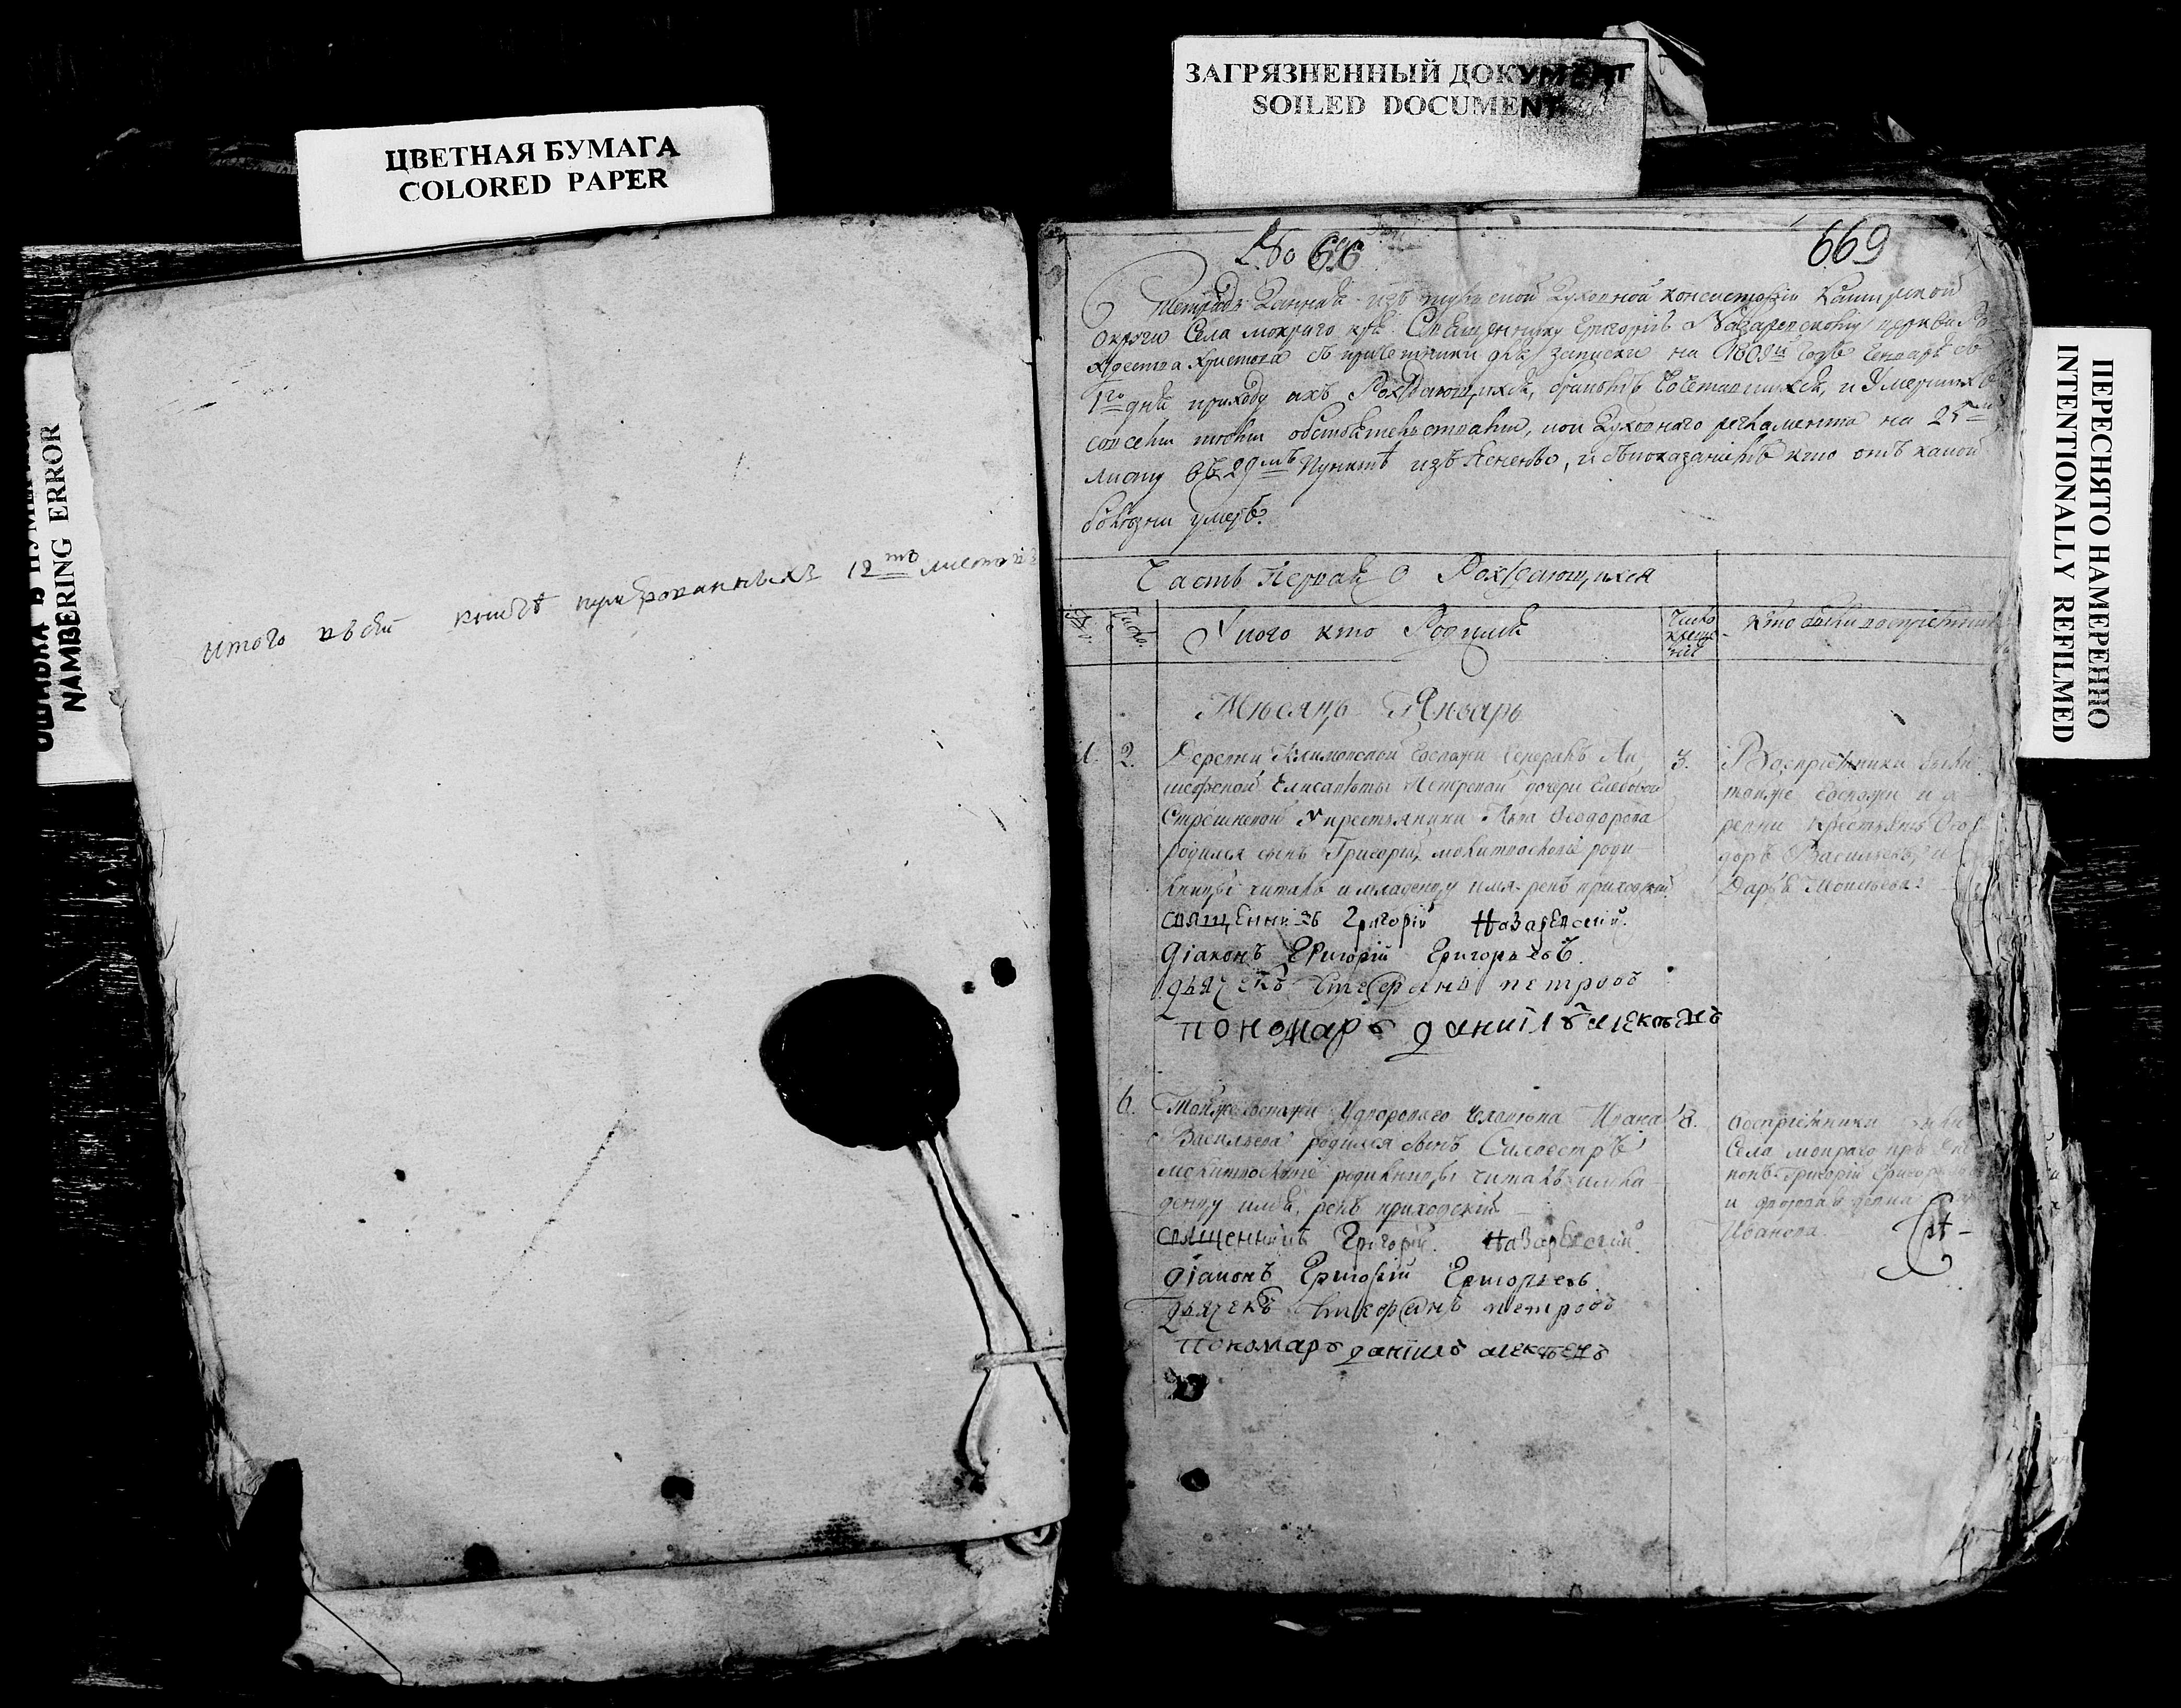 ЦВЕТНАЯ БУМАГА
COLORED PAPER
ЗАГРЯЗНЕННЫЙ ДОКУМЕНТ
SOILED DOCUMENT
NAMBERING ERROR
итого нумерованныхъ 12 листовъ
ПЕРЕСНЯТО НАМЕРЕННО
INTENTIONALLY REFILMED
№ 66
669
Тетрадь Данная изъ тульской Духовной консисторіи Каширской
округи Села мокраго Священнику Григорію Назаревскому церкви Ро
ждества Христова съ причетники для записки на 1809й годъ Генваря съ
1го дня приходу ихъ Рождающихся, бракомъ Сочетавшихся, и Умершихъ
со всеми теми обстоятельствами, кои Духовнаго регламента на
листу въ 29мъ Пункте изъяснено, и съ показаніемъ кто отъ какой
болезни умеръ.
Часть Первая О Рождающихся
Число
У кого кто Родился
Число
креще
нія
Кто были воспріемники
Месяцъ Январь
1.
2.
Деревни Климовской Госпожи
Елисаветы Петровой дочери Глебовой
Стрешневой У крестьянина Льва Феодорова
родился сынъ Григорій, молитвословіе роди
льницы читалъ и младенцу имя рекъ приходскій
священникъ Григорій Назаревскій.
діаконъ Григорій Григорьевъ.
дьячекъ Стефанъ петровъ
пономарь даніилъ алексеевъ
3.
Воспріемники были
тойже Госпожи и де
ревни крестьянъ Фео
доръ Васильевъ, и
Дарья
6.
Тойже Госпожи У двороваго человека Ивана
Васильева родился сынъ Силвестръ
молитвословіе родильницы читалъ и мла
денцу имя рекъ приходскій
священникъ Григорій Назаревскій.
діаконъ Григорій Григорьевъ.
дьячекъ Стефанъ петровъ
пономарь даніилъ алексеевъ
8.
воспріемники были
Села мокраго
Григорій Григорьевъ
и дворовая
Иванова